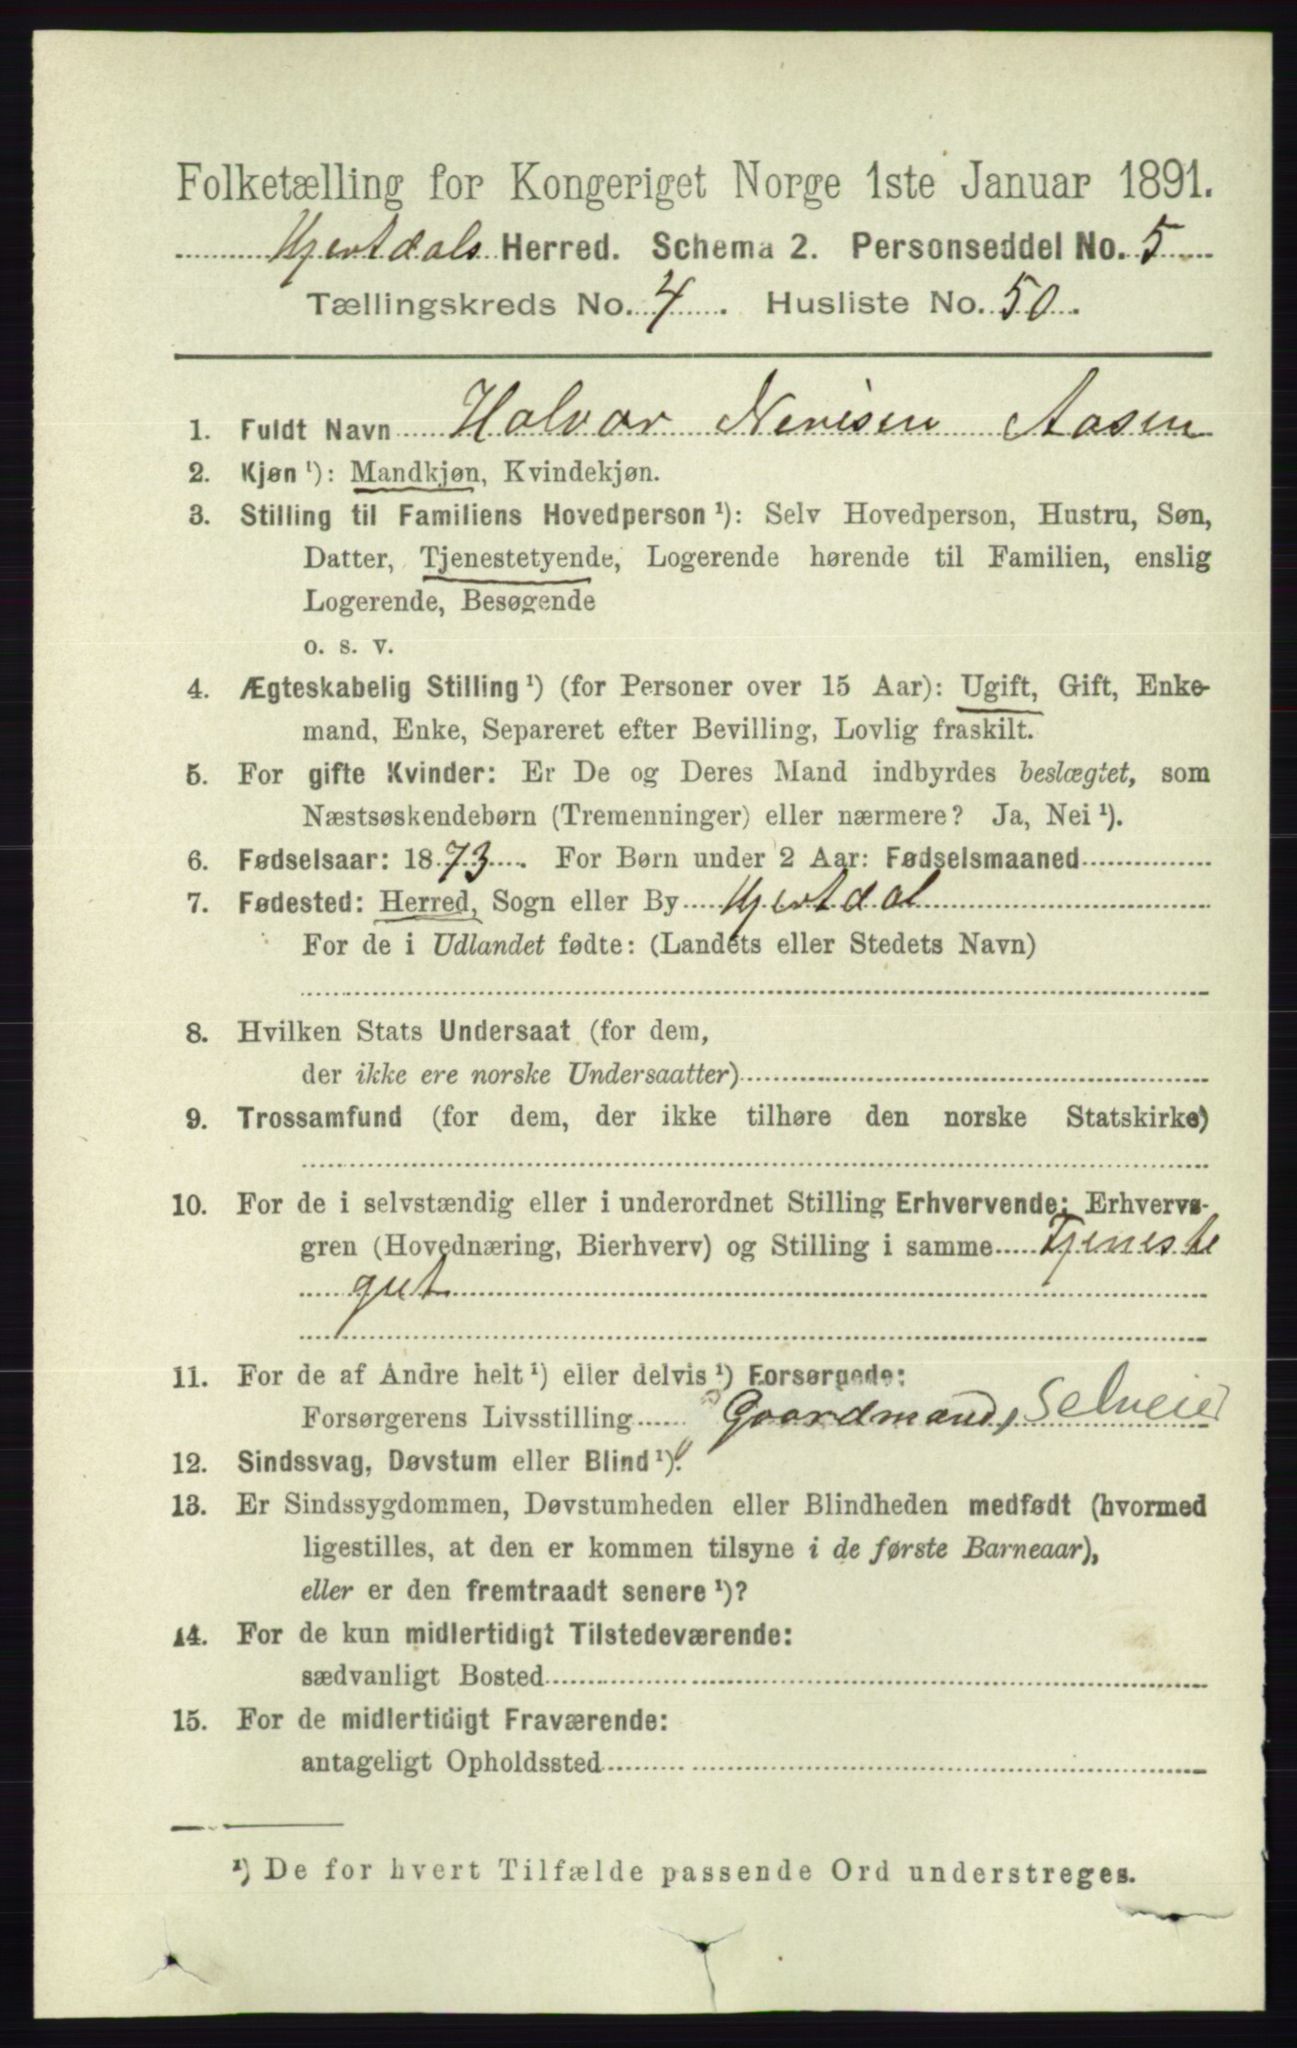 Folketælling for Kongeriget Norge 1ste Januar 1891.
Hjertdals Herred. Schema 2. Personseddel No. 5
Tællingskreds No. 4. Husliste No. 50.
1. Fuldt Navn Halvor Nerisen Aasen
2. Kjøn ¹): Mandkjøn, Kvindekjøn.
3. Stilling til Familiens Hovedperson ¹): Selv Hovedperson, Hustru, Søn,
Datter, Tjenestetyende, Logerende hørende til Familien, enslig
Logerende, Besøgende
o. s. v.
4. Ægteskabelig Stilling ¹) (for Personer over 15 Aar): Ugift, Gift, Enke-
mand, Enke, Separeret efter Bevilling, Lovlig fraskilt.
5. For gifte Kvinder: Er De og Deres Mand indbyrdes beslægtet, som
Næstsøskendebørn (Tremenninger) eller nærmere? Ja, Nei ¹).
6. Fødselsaar: 1873. For Børn under 2 Aar: Fødselsmaaned
7. Fødested: Herred, Sogn eller By Hjertdal
For de i Udlandet fødte: (Landets eller Stedets Navn)
8. Hvilken Stats Undersaat (for dem,
der ikke ere norske Undersaatter)
9. Trossamfund (for dem, der ikke tilhøre den norske Statskirke)
10. For de i selvstændig eller i underordnet Stilling Erhvervende: Erhvervs-
gren (Hovednæring, Bierhverv) og Stilling i samme Tjeneste
gut
11. For de af Andre helt ¹) eller delvis ¹) Forsørgede:
Forsørgerens Livsstilling Gaardmand, Selveier
12. Sindssvag, Døvstum eller Blind ¹).
13. Er Sindssygdommen, Døvstumheden eller Blindheden medfødt (hvormed
ligestilles, at den er kommen tilsyne i de første Barneaar),
eller er den fremtraadt senere ¹)?
14. For de kun midlertidigt Tilstedeværende:
sædvanligt Bosted
15. For de midlertidigt Fraværende:
antageligt Opholdssted
¹) De for hvert Tilfælde passende Ord understreges.